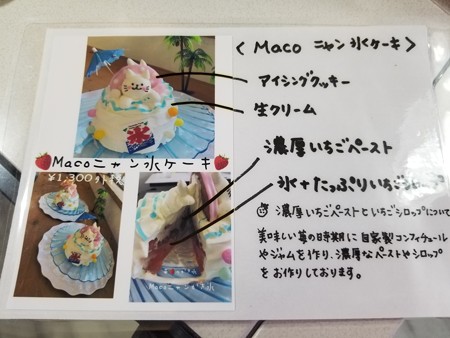 〈 Maco ニャン 氷ケーキ 〉
アイシングクッキー
生クリーム
濃厚いちごペースト
氷+たっぷりいちごシロップ
濃厚いちごペーストといちごシロップについて
美味しい苺の時期に自家製コンフィチュール
やジャムを作り、濃厚なペーストやシロップ
をお作りしております。
Macoニャン氷ケーキ
¥1,300
氷